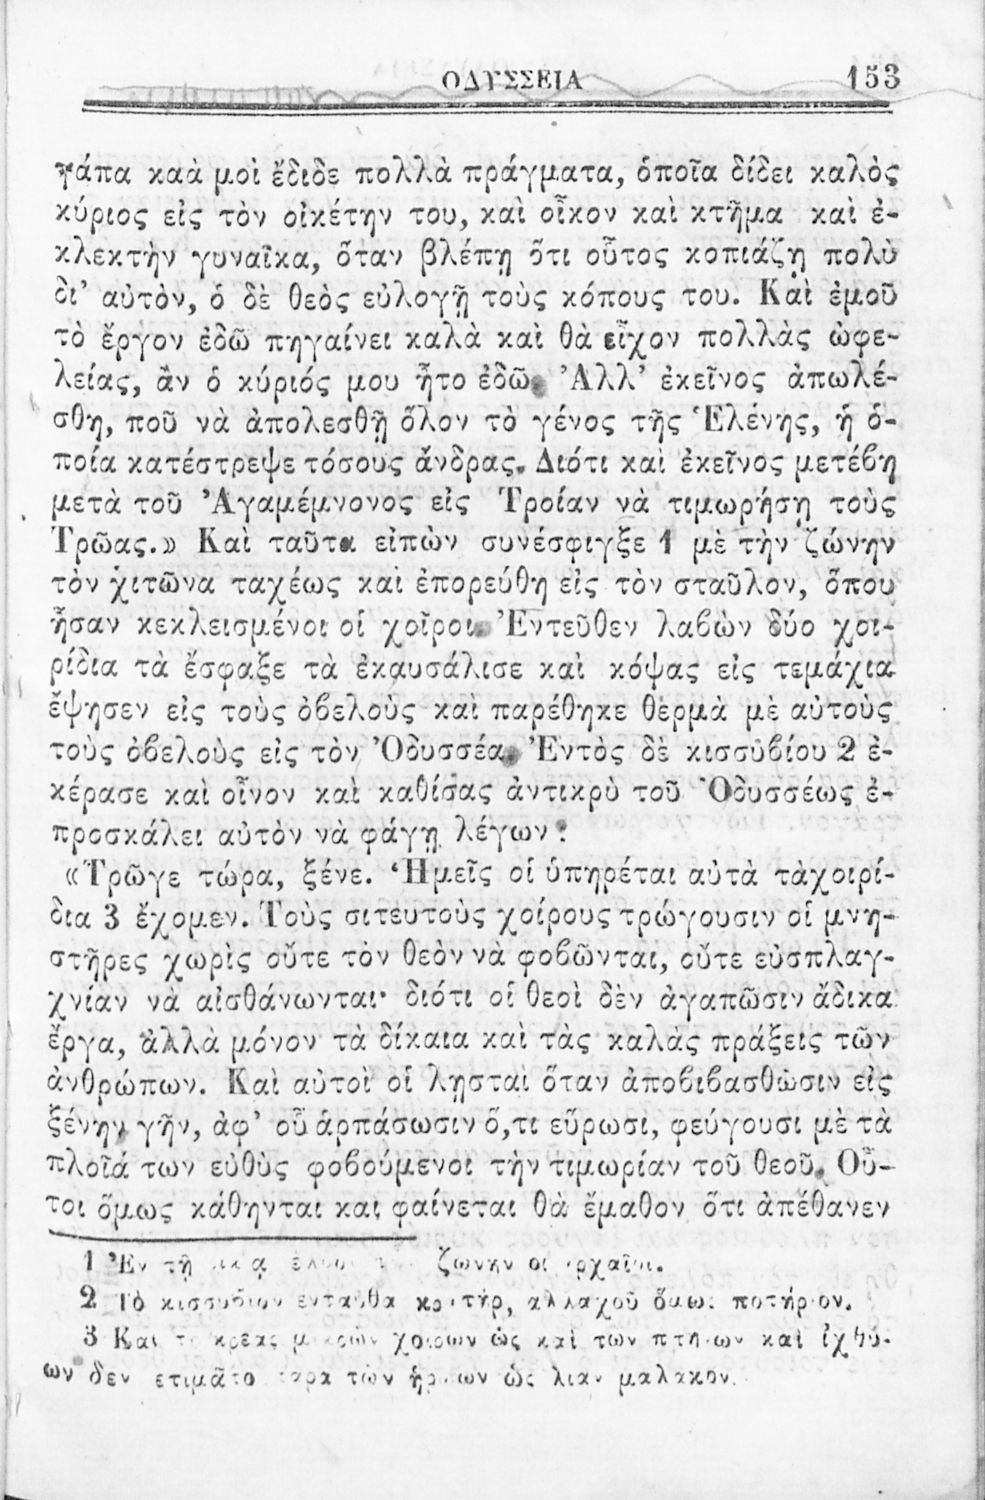 ΟΔΥΣΣΕΙΑ 153
γάπα καὰ μοὶ ἔδιδε πολλὰ πράγματα, ὁποῖα δίδει καλὸς
κύριος εἰς τὸν οἰκέτην του, καὶ οἶκον καὶ κτῆμα καὶ ἐ-
κλεκτὴν γυναῖκα, ὅταν βλέπῃ ὅτι οὗτος κοπιάζῃ πολὺ
δι’ αὐτὸν, ὁ δὲ θεὸς εὐλογῇ τοὺς κόπους του. Καὶ ἐμοῦ
τὸ ἔργον ἐδῶ πηγαίνει καλὰ καὶ θὰ εἶχον πολλὰς ὠφε-
λείας, ἂν ὁ κύριός μου ἦτο ἐδῶ. Ἀλλ’ ἐκεῖνος ἀπωλέ-
σθη, ποῦ νὰ ἀπολεσθῇ ὅλον τὸ γένος τῆς Ἑλένης, ἡ ὁ-
ποία κατέστρεψε τόσους ἄνδρας. Διότι καὶ ἐκεῖνος μετέβη
μετὰ τοῦ Ἀγαμέμνονος εἰς Τροίαν νὰ τιμωρήσῃ τοὺς
Τρῶας.» Καὶ ταῦτα εἰπὼν συνέσφιγξε 1 μὲ τὴν ζώνην
τὸν χιτῶνα ταχέως καὶ ἐπορεύθη εἰς τὸν σταῦλον, ὅπου
ἦσαν κεκλεισμένοι οἱ χοῖροι. Ἐντεῦθεν λαβὼν δύο χοι-
ρίδια τὰ ἔσφαξε τὰ ἐκαυσάλισε καὶ κόψας εἰς τεμάχια
ἔψησεν εἰς τοὺς ὀβελοὺς καὶ παρέθηκε θερμὰ μὲ αὐτοὺς
τοὺς ὀβελοὺς εἰς τὸν Ὀδυσσέα. Ἐντὸς δὲ κισσυβίου 2 ἐ-
κέρασε καὶ οἶνον καὶ καθίσας ἀντικρὺ τοῦ Ὀδυσσέως ἐ-
προσκάλει αὐτὸν νὰ φάγῃ λέγων·
«Τρῶγε τώρα, ξένε. Ἡμεῖς οἱ ὑπηρέται αὐτὰ τὰ χοιρί-
δια 3 ἔχομεν. Τοὺς σιτευτοὺς χοίρους τρώγουσιν οἱ μνη-
στῆρες χωρὶς οὔτε τὸν θεὸν νὰ φοβῶνται, οὔτε εὐσπλαγ-
χνίαν νὰ αἰσθάνωνται· διότι οἱ θεοὶ δὲν ἀγαπῶσιν ἄδικα
ἔργα, ἀλλὰ μόνον τὰ δίκαια καὶ τὰς καλὰς πράξεις τῶν
ἀνθρώπων. Καὶ αὐτοὶ οἱ λῃσταὶ ὅταν ἀποβιβασθῶσιν εἰς
ξένην γῆν, ἀφ’ οὗ ἁρπάσωσιν ὅ,τι εὕρωσι, φεύγουσι μὲ τὰ
πλοῖά των εὐθὺς φοβούμενοι τὴν τιμωρίαν τοῦ θεοῦ. Οὗ-
τοι ὅμως κάθηνται και φαίνεται θὰ ἔμαθον ὅτι ἀπέθανεν
1 Ἐν τῇ ζωνην οἱ ἀρχαῖοι.
2 Τὸ κισσυβιον ενταυθα κρατήρ, αλλαχοῦ ὅμως ποτήριον.
3 Και το κρεας μικρων χοιρων ὡς καὶ των πτηνων καὶ ἰχθύ-
ων δεν ετιμᾶτο παρα τῶν ἡρωων ὡς λιαν μαλακον.